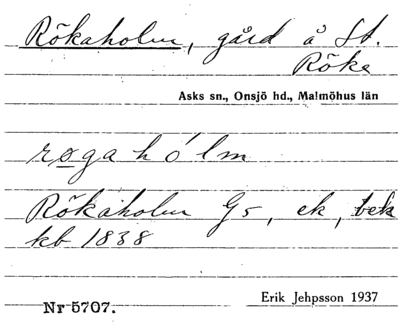 Rökaholm, gård å St.
Röke
Asks sn., Onsjö hd., Malmöhus län
røgahólm
Rökaholm Gs, ek, bek
kb 1838
Nr 5707.
Erik Jehpsson 1937